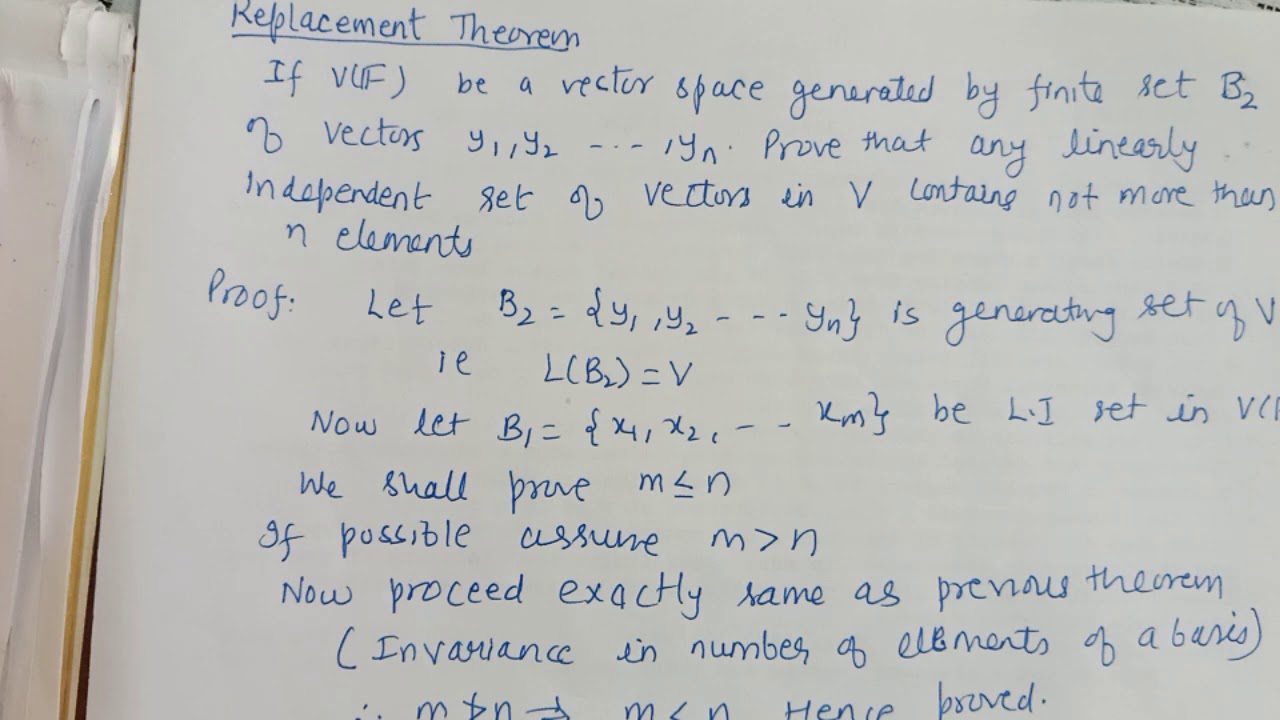 Replacement Theorem
If V(F) be a vector space generated by finite set B₂
of vectors y₁, y₂ ---, yₙ. Prove that any linearly
independent set of vectors in V contains not more than
n elements
Proof: Let B₂ = {y₁, y₂ --- yₙ} is generating set of V
ie L(B₂) = V
Now let B₁ = {x₁, x₂, -- xₘ} be L.I set in V(
We shall prove m ≤ n
If possible assume m > n
Now proceed exactly same as previous theorem
(Invariance in number of elements of a basis)
∴ m ≯ n ⇒ m ≤ n Hence proved.